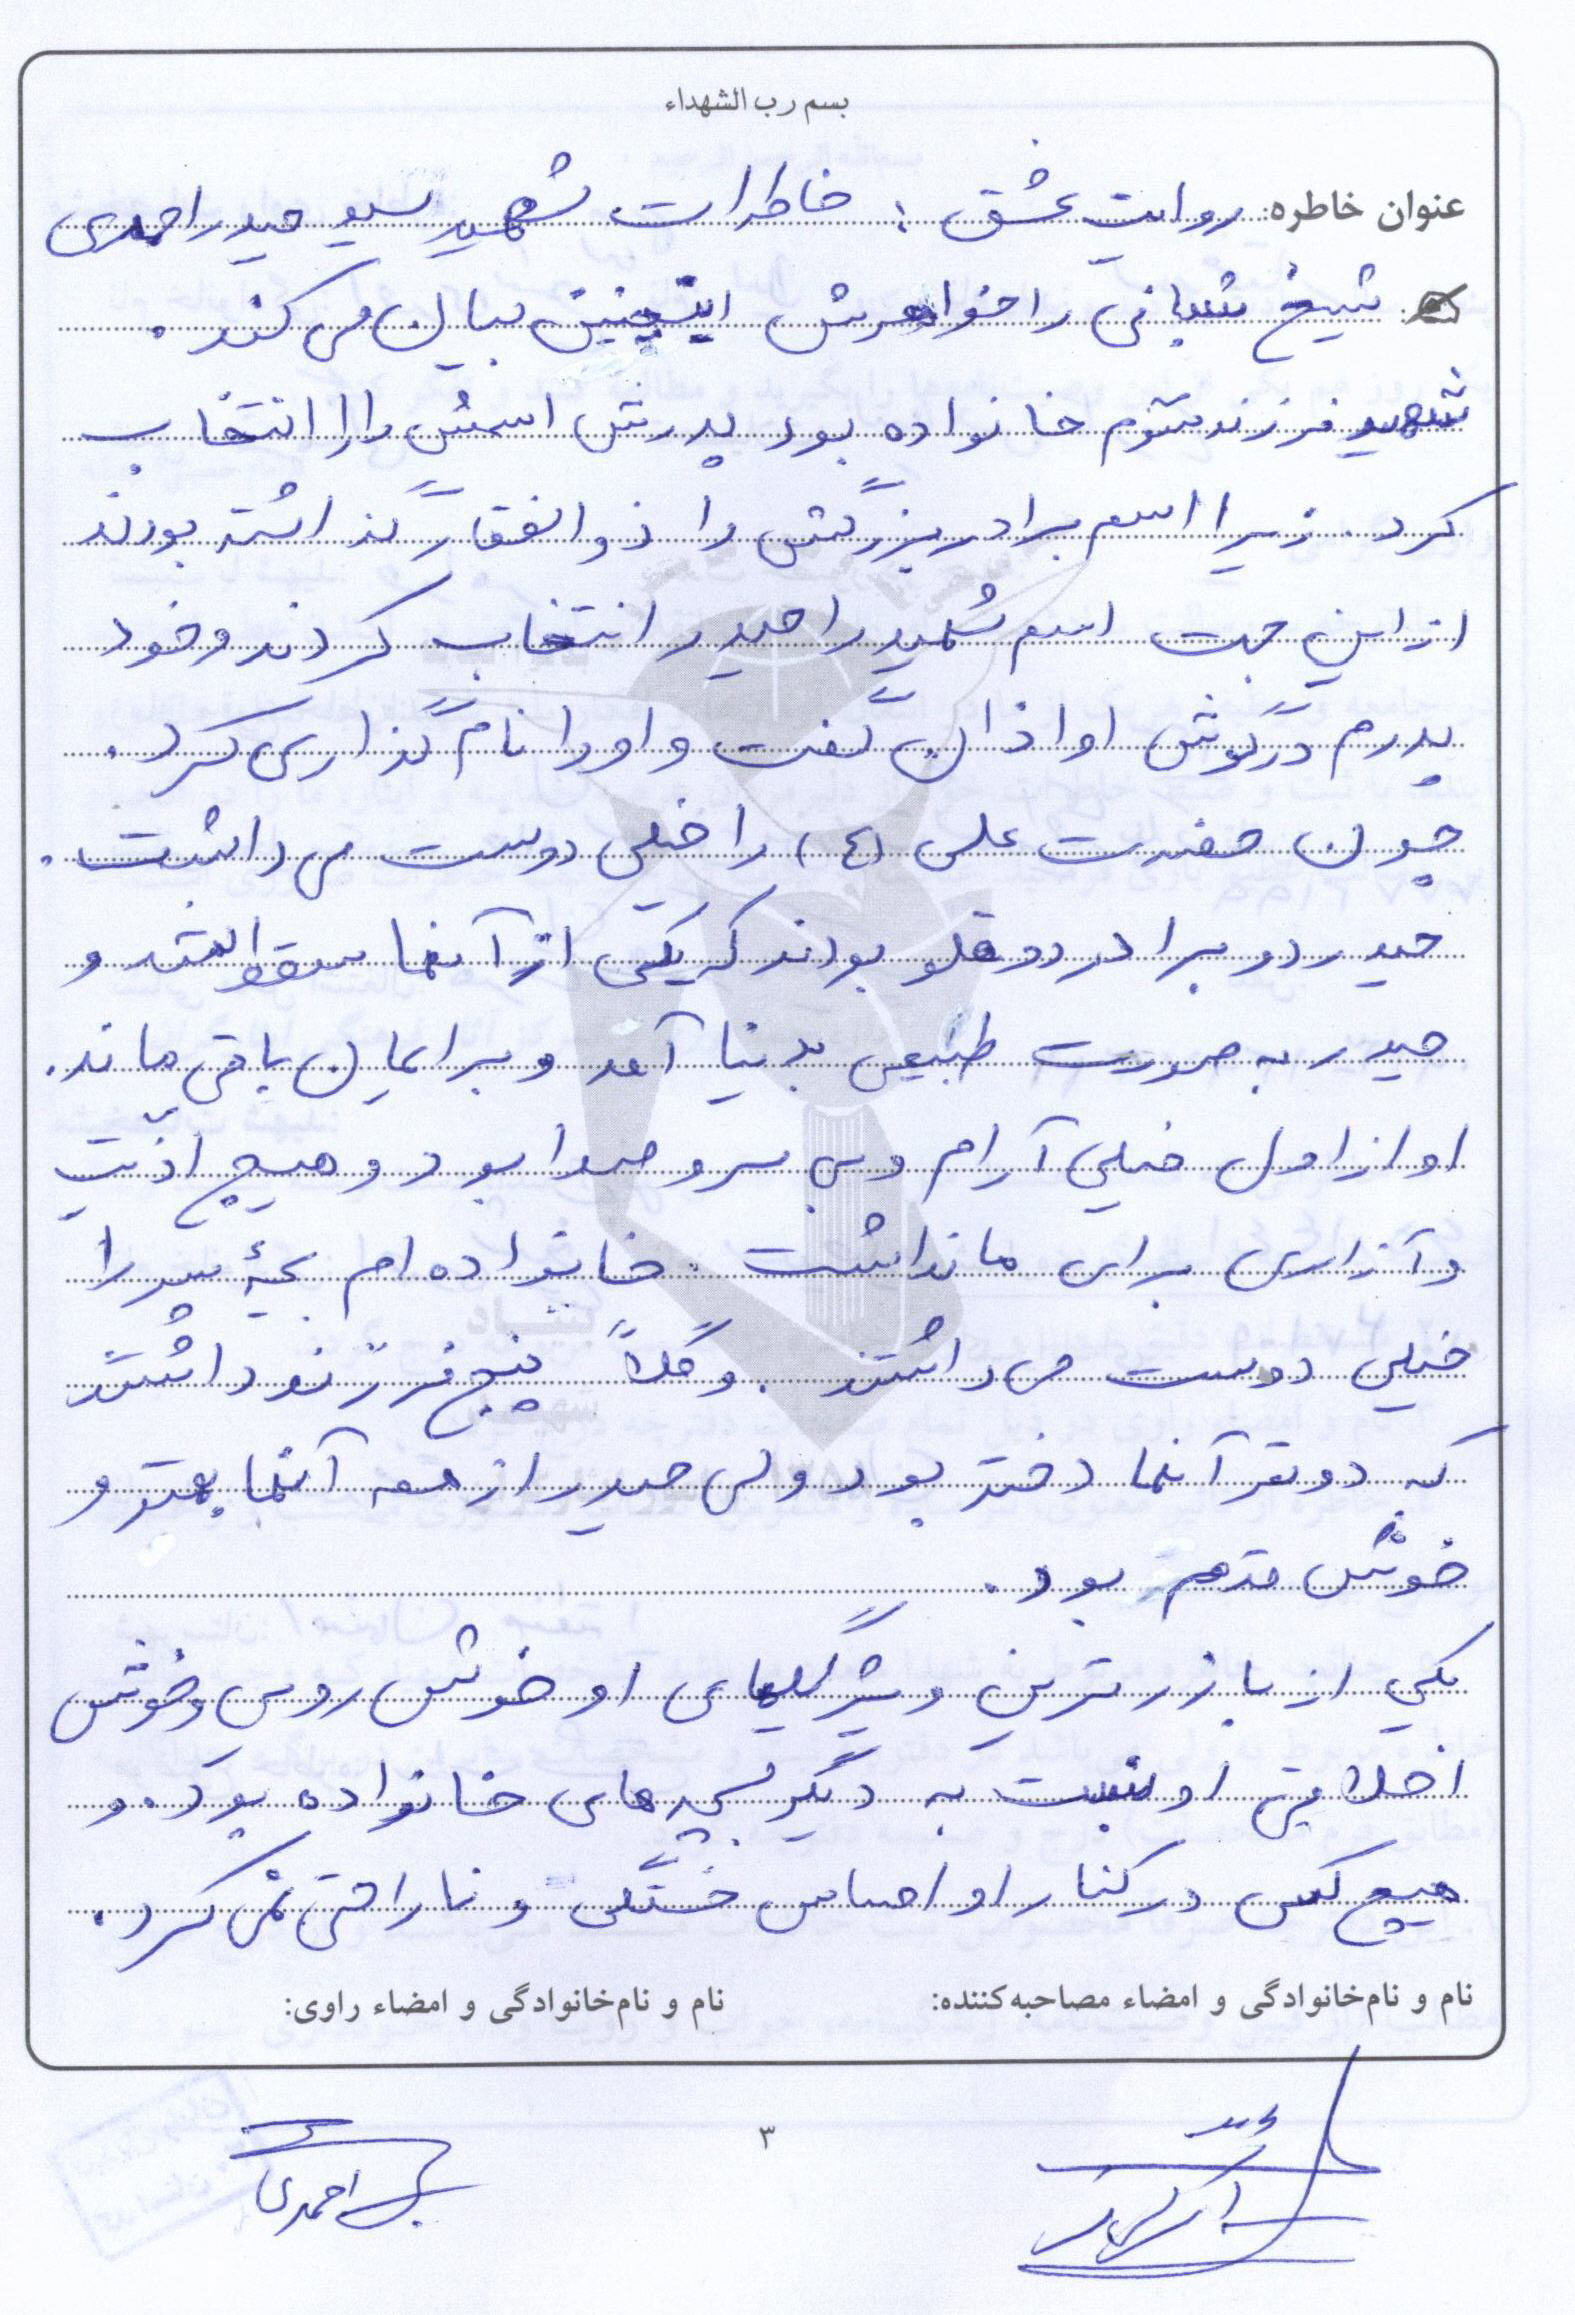 بسم رب الشهداء
عنوان خاطره: روایت عشق : خاطرات شهید سید حیدر احمدی
شیخ شبانی را خواهرش اینچنین بیان می کند .
شهید فرزند سوم خانواده بود پدرش اسمش را انتخاب
کرد . زیرا اسم برادر بزرگش را ذوالفقار گذاشته بودند
از این جهت اسم شهید را حیدر انتخاب کردند و خود
پدرم در گوش او اذان گفت و او را نام گذاری کرد .
چون حضرت علی (ع) را خیلی دوست می داشت .
حیدر دو برادر دوقلو بودند که یکی از آنها سقط شد و
حیدر به صورت طبیعی بدنیا آمد و برایمان باقی ماند .
او از اول خیلی آرام و بی سر و صدا بود و هیچ اذیت
و آزاری برای ما نداشت . خانواده ام بچهٔ پسر را
خیلی دوست می داشتند . و کلاً پنج فرزند داشتند
که دو نفر آنها دختر بود ولی حیدر از همه آنها بهتر و
خوش قدم بود .
یکی از بارزترین ویژگیهای او خوش رویی و خوش
اخلاقی او نسبت به دیگر بچه های خانواده بود . و
هیچ کس در کنار او احساس خستگی و ناراحتی نمی کرد .
نام و نام‌خانوادگی و امضاء مصاحبه‌کننده:
نام و نام‌خانوادگی و امضاء راوی:
۳
احمدی